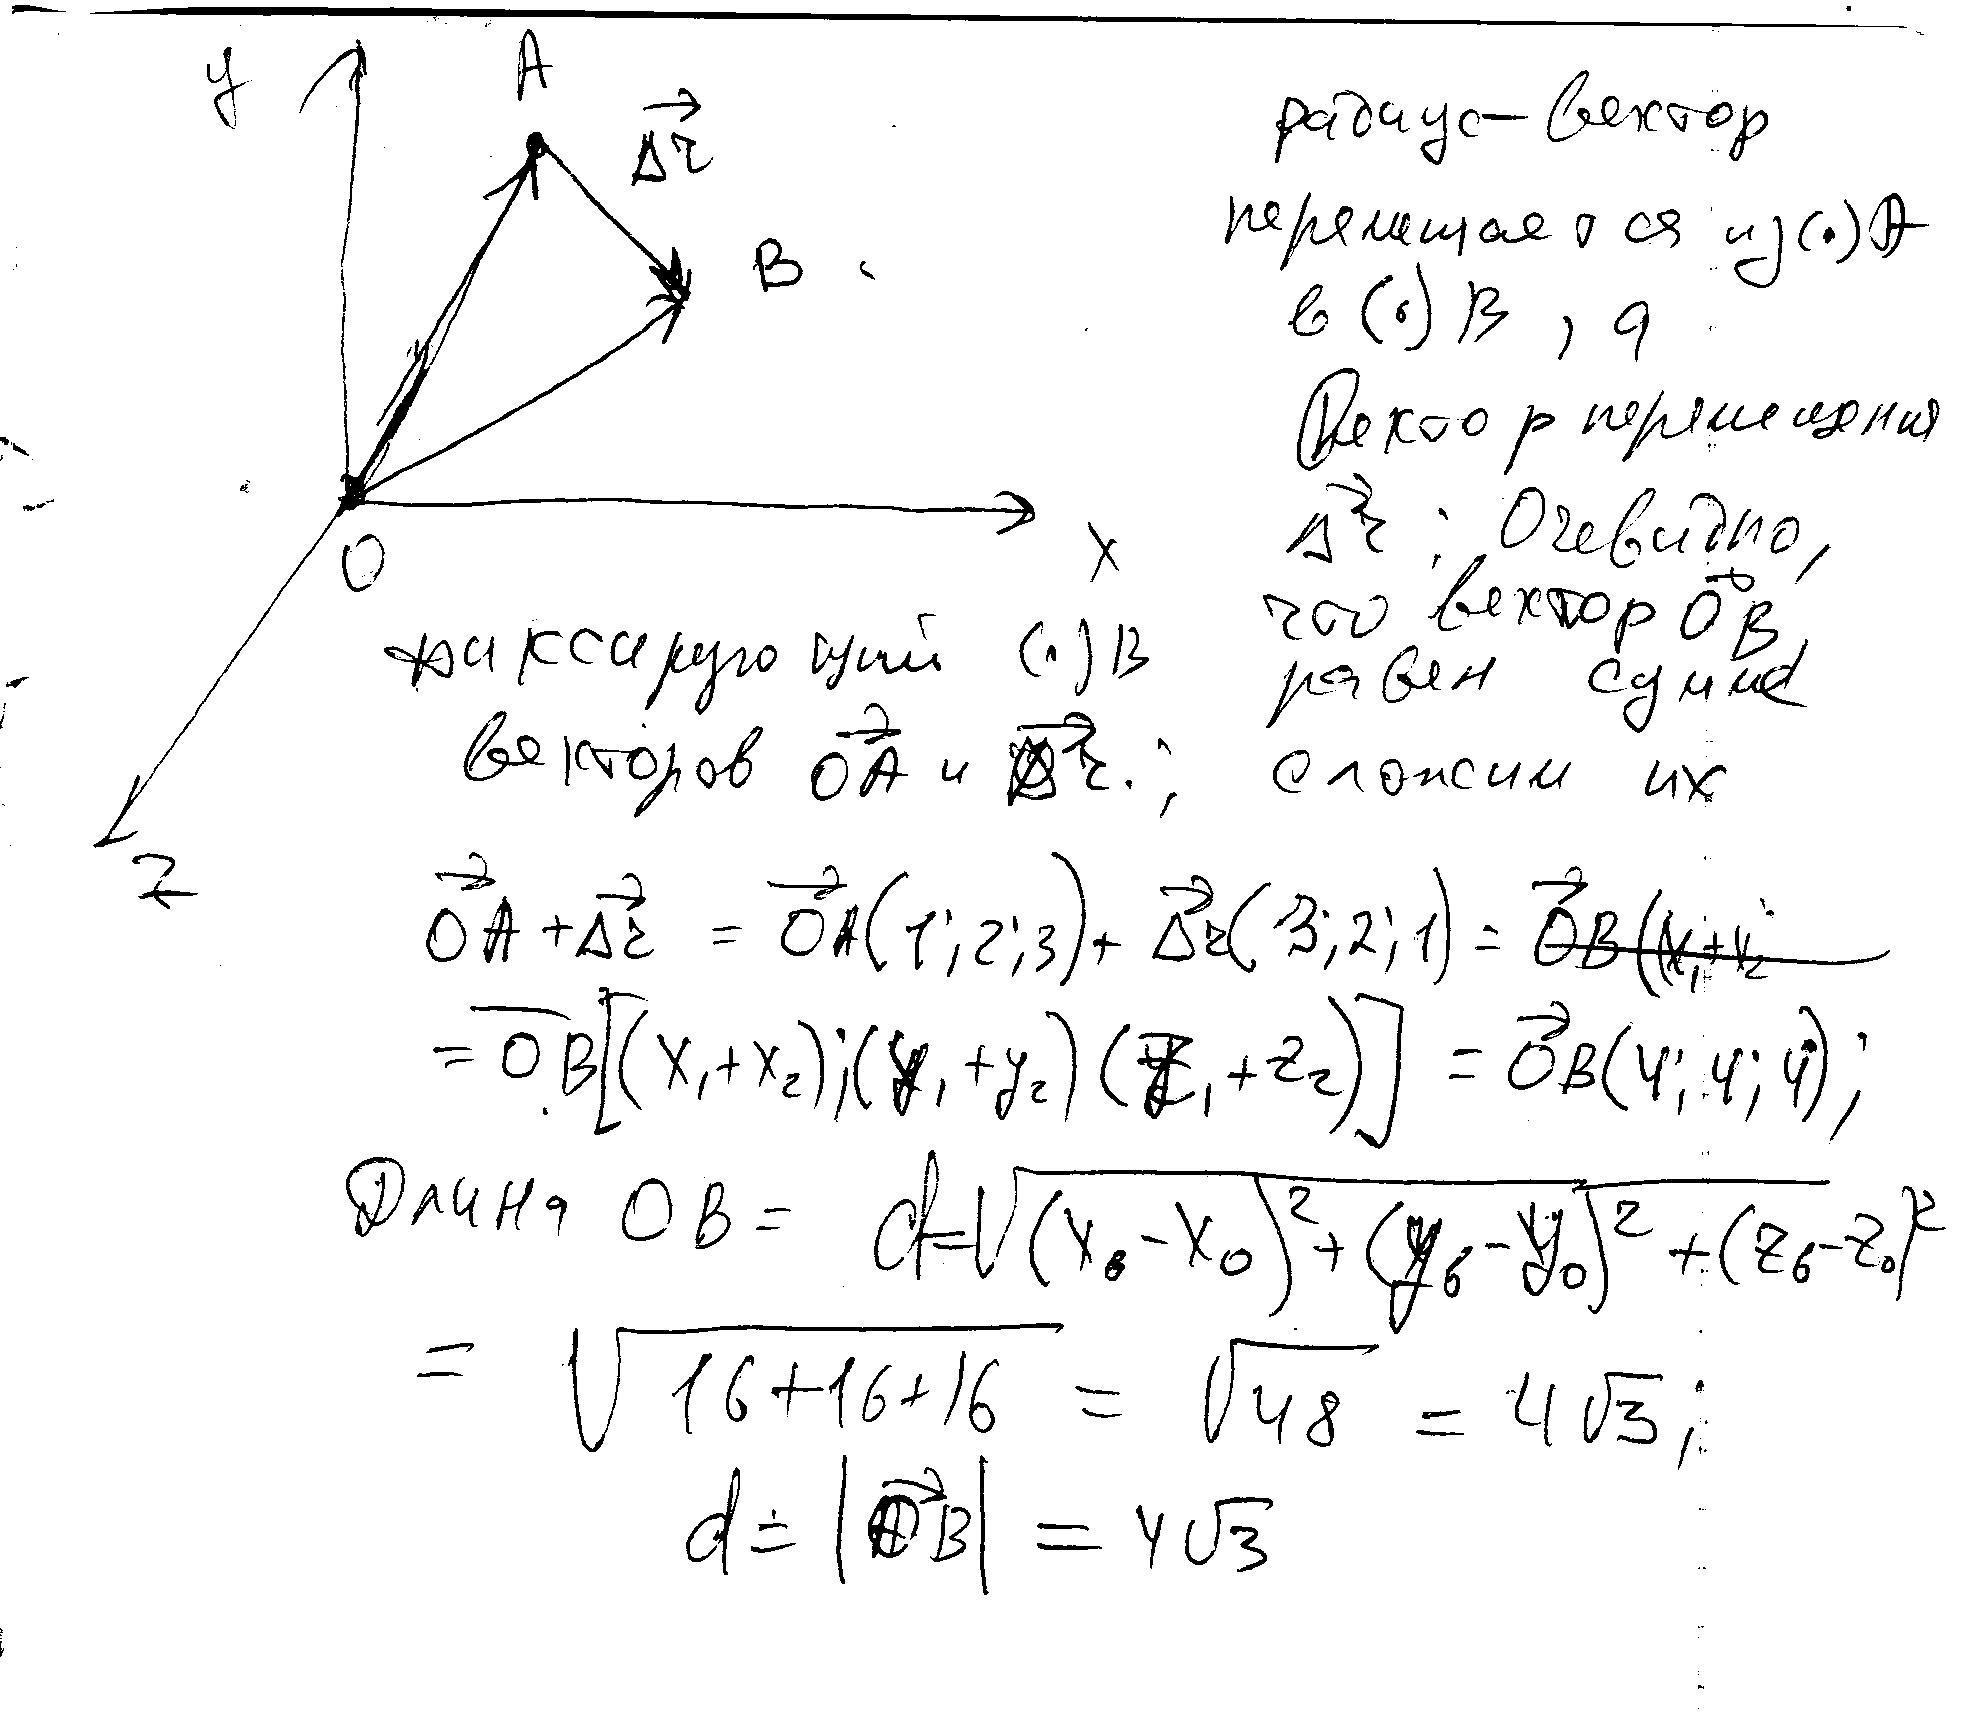 y
A
Δr⃗
B
O
X
Z
радиус-вектор
перемещается из (.) A
в (.) B, а
Вектор перемещения
Δr⃗; Очевидно,
что вектор O⃗B,
фиксирующий (.) B
равен сумме
векторов O⃗A и Δr⃗.; сложим их
O⃗A + Δr⃗ = O⃗A(1; 2; 3) + Δr⃗(3; 2; 1) = O⃗B(x₁+x₂
= OB[(x₁+x₂);(y₁+y₂)(z₁+z₂)] = O⃗B(4; 4; 4);
Длина OB = d=√(x_в-x_0)²+(y_в-y_0)²+(z_в-z_0)²
= √16+16+16 = √48 = 4√3;
d = |O⃗B| = 4√3